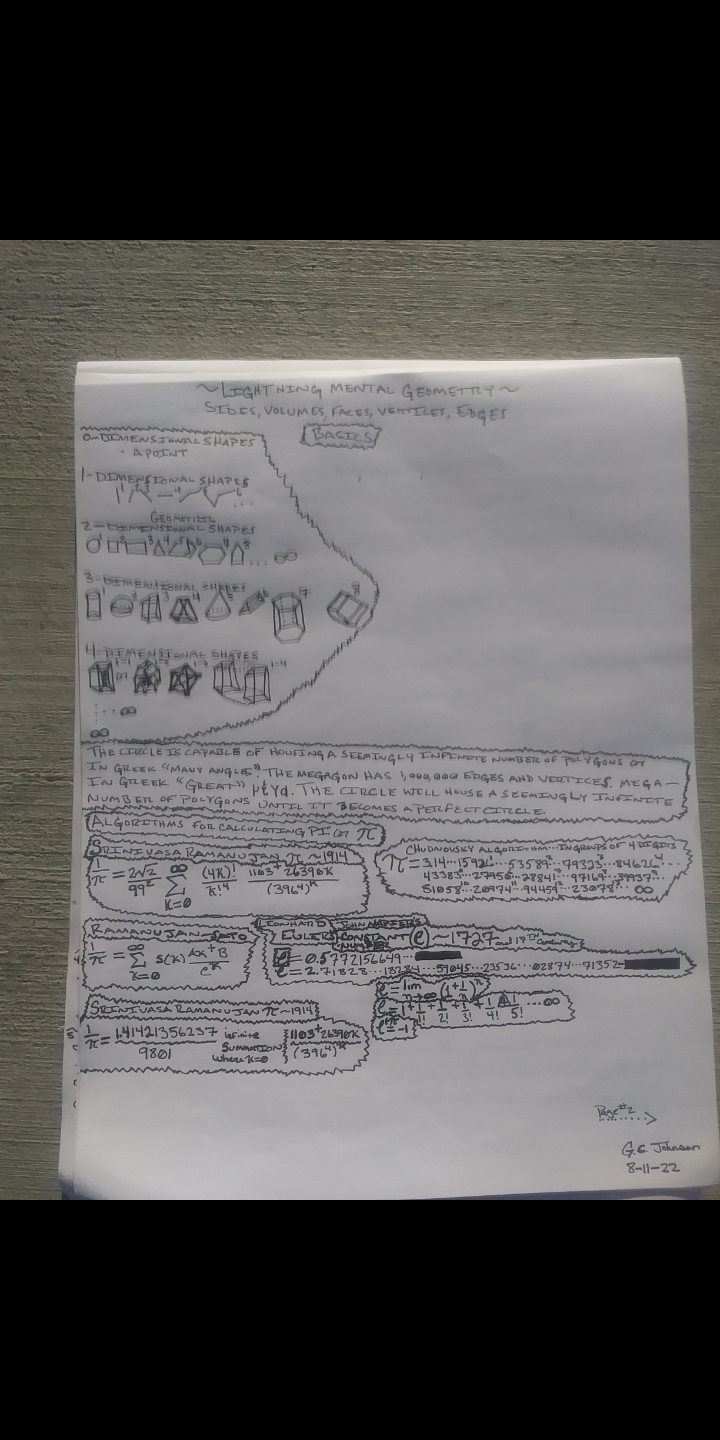 ~LIGHTNING MENTAL GEOMETRY~
SIDES, VOLUMES, FACES, VERTILES, EDGES
BASICS
0-DIMENSIONAL SHAPES
• A POINT
1-DIMENSIONAL SHAPES
GEOMETRIC
2-DIMENSIONAL SHAPES
1 2 3 4 5 6 7 8 ... ∞
3-DIMENSIONAL SHAPES
1 2 3 4 5 6 7 8
4-DIMENSIONAL SHAPES
... ∞
∞
THE CIRCLE IS CAPABLE OF HOUSING A SEEMINGLY INFINITE NUMBER OF POLYGONS OR
IN GREEK "MANY ANGLES". THE MEGAGON HAS 1,000,000 EDGES AND VERTICES. MEGA-
IN GREEK "GREAT" μεγα. THE CIRCLE WILL HOUSE A SEEMINGLY INFINITE
NUMBER OF POLYGONS UNTIL IT BECOMES A PERFECT CIRCLE.
ALGORITHMS FOR CALCULATING PI OR π
SRINIVASA RAMANUJAN π ~1914
1/π = 2√2/99² ∞ Σ K=0 (4K)!/K!⁴ 1103+26390K/(396⁴)ᴷ
CHUDNOVSKY ALGORITHM... IN GROUPS OF 4 DIGITS
π = 3.14...15926...53589...79323...84626...
43383...27950...28841...97169...39937...
51058...20974...94459...23078... ∞
RAMANUJAN-SATO
1/π = ∞ Σ K=0 S(K) AK+B/Cᴷ
LEONHARD JOHN NAPIERS
EULERS CONSTANT (e) ~1727 and 17TH century
NUMBER
= 0.5772156649...
e = 2.71828...18284...59045...23536...02874...71352...
e = lim n→∞ (1+1/n)ⁿ
e = 1+1/1!+1/2!+1/3!+1/4!+1/5! ... ∞
= -1
SRINIVASA RAMANUJAN π ~1914
1/π = 1.41421356237/9801 infinite SUMMATION where K=0 1103+26390K/(396⁴)ᴷ
Page #2
G.C. Johnson
8-11-22